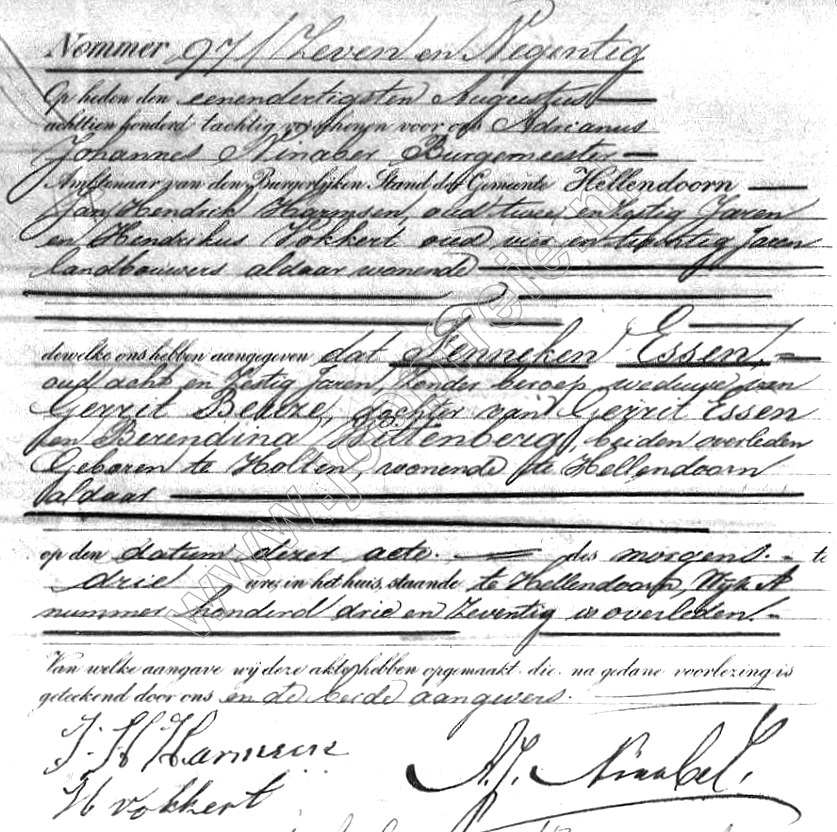 Nommer 97/ Zeven en Negentig
Op heden den eenendertigsten Augustus
achttien honderd tachtig verschenen voor ons Adrianus
Johannes Burgemeester
Ambtenaar van den Burgerlijken Stand der Gemeente Hellendoorn
Jan Hendrik Harmsen, oud twee en zestig Jaren
en Hendrikus Vokkert oud vier en Jaren
landbouwers aldaar wonende
dewelke ons hebben aangegeven dat Fenneken Essen,
oud acht en zestig Jaren, zonder beroep weduwe van
Gerrit dochter van Gerrit Essen
en Berendina Wittenberg, beiden overleden
Geboren te Holten, wonende te Hellendoorn
aldaar
op den datum dezer acte. des morgens. te
drie ure, in het huis, staande te Hellendoorn, Wijk A
nummer honderd drie en zeventig is overleden.
Van welke aangave wij deze akte hebben opgemaakt. die. na gedane voorlezing is
geteekend door ons en de beide aangevers.
J. H Harmsen
A. J.
H vokkert